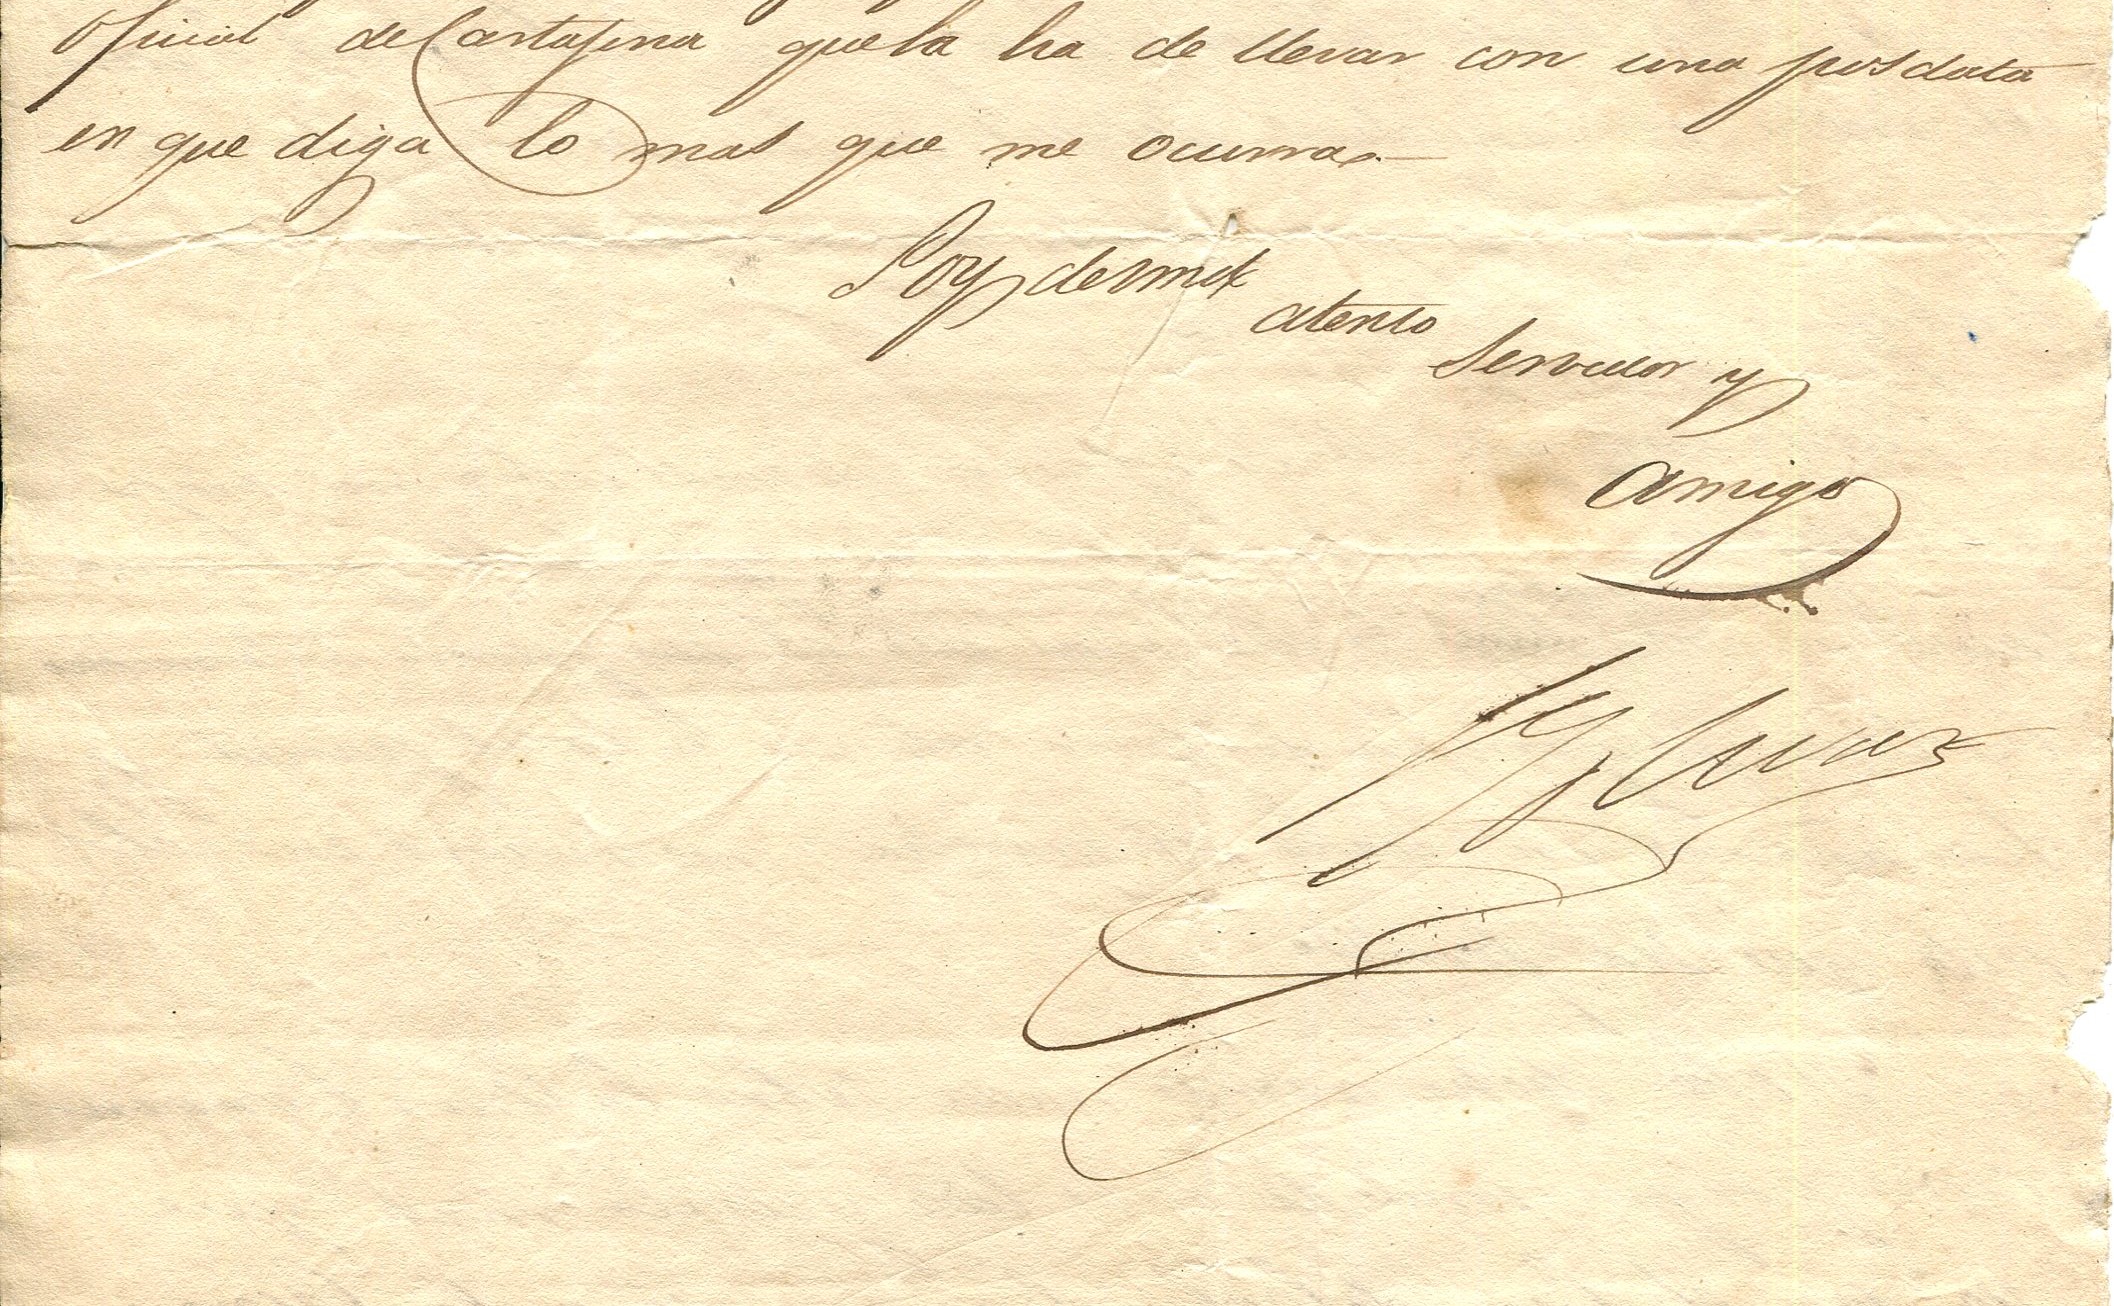 oficial de Cartajena que la ha de llevar con una posdata
en que diga lo mas que me ocurra.
Soy de
atento
Servidor y
amigo